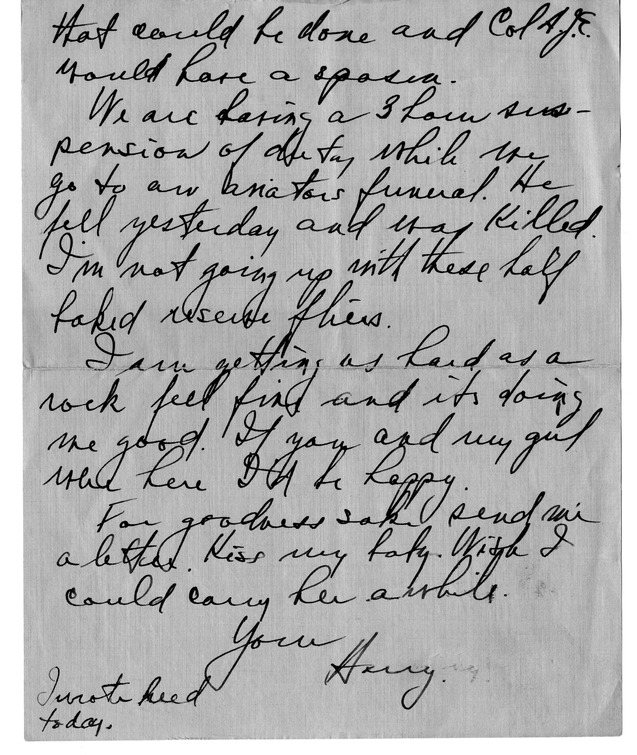 that could be done and Col A.J.E.
would have a spasm.
We are having a 3 hour sus-
pension of duty while we
go to an aviators funeral. He
fell yesterday and was killed.
I'm not going up with these half
baked reserve fliers.
I am getting as hard as a
rock feel fine and its doing
me good. If you and my girl
were here I'd be happy.
For goodness sake send me
a letter. Kiss my baby. Wish I
could carry her awhile.
Your
Harry.
I wrote
today.